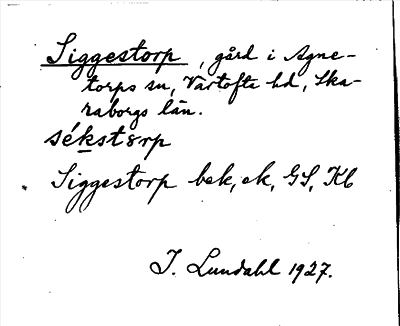 Siggestorp, gård i Agne-
torps sn, Vartofta hd, Ska-
raborgs län.
sékstɜrp
Siggestorp bek, ek, GS, Kb
I. Lundahl 1927.